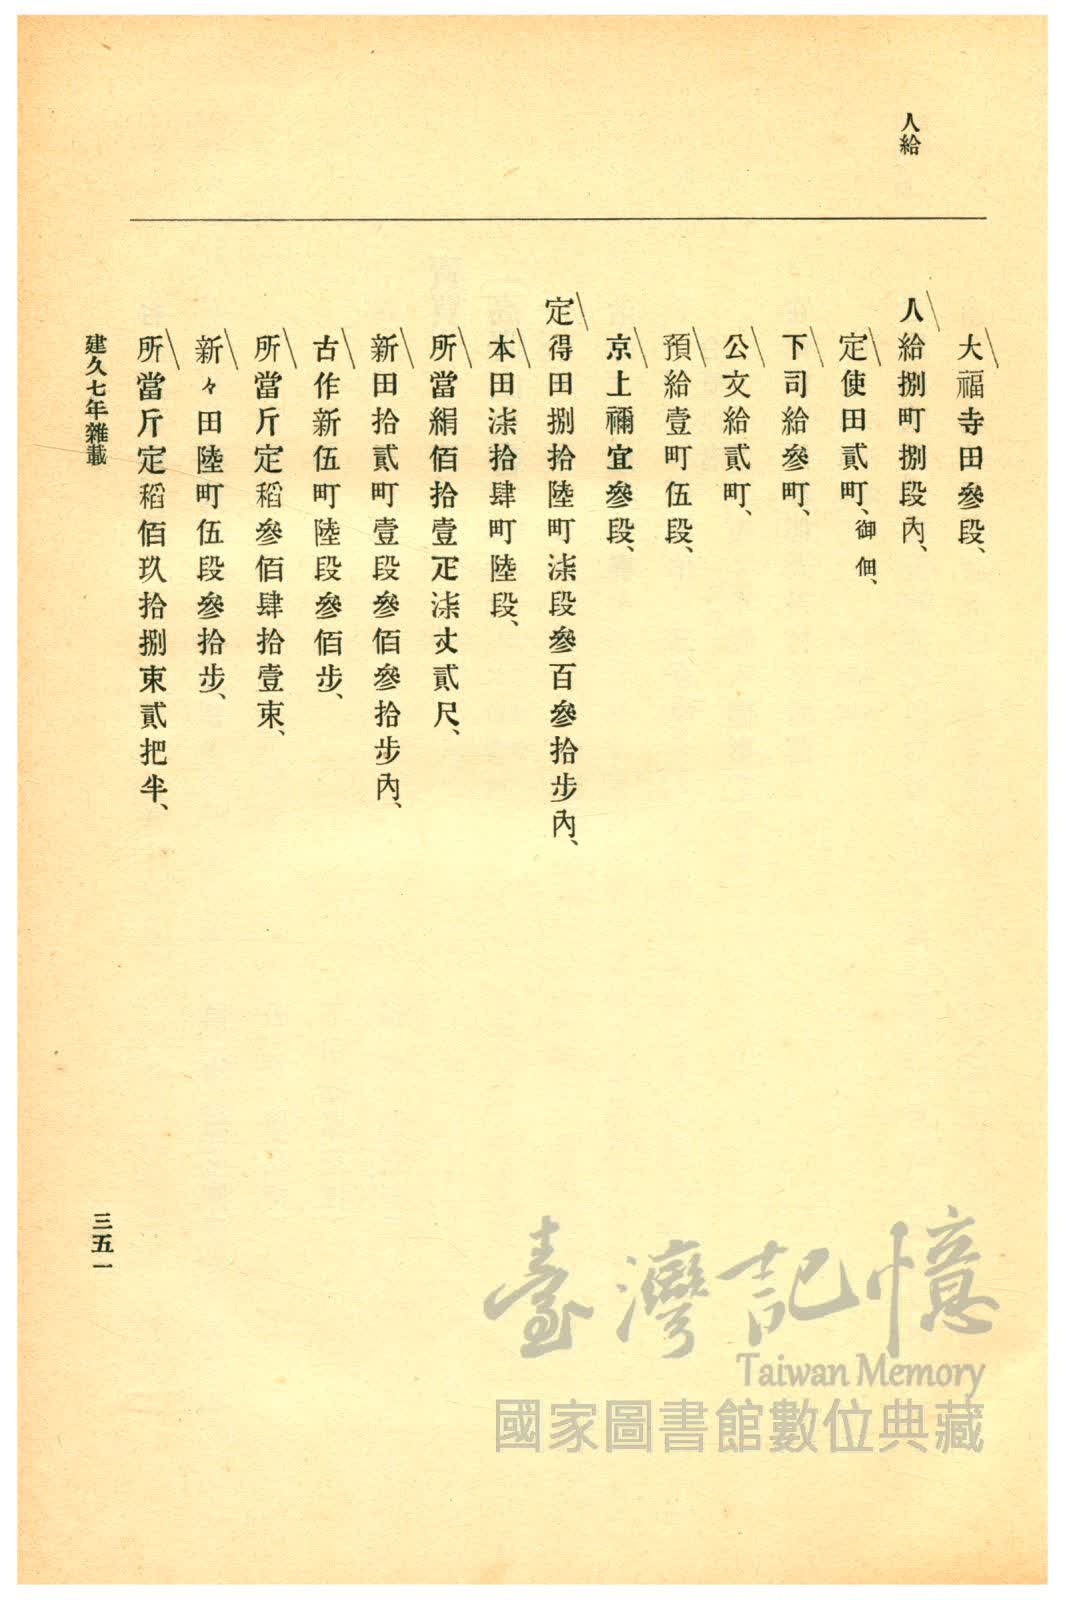 人給
大福寺田參段、
人給捌町捌段內、
定使田貳町、御佃、
下司給參町、
公文給貳町、
預給壹町伍段、
京上禰宜參段、
定得田捌拾陸町柒段參百參拾步內、
本田柒拾肆町陸段、
所當絹佰拾壹疋柒丈貳尺、
新田拾貳町壹段參佰參拾步內、
古作新伍町陸段參佰步、
所當斤定稻參佰肆拾壹束、
新々田陸町伍段參拾步、
所當斤定稻佰玖拾捌束貳把半、
建久七年雜載
三五一
臺灣記憶
Taiwan Memory
國家圖書館數位典藏